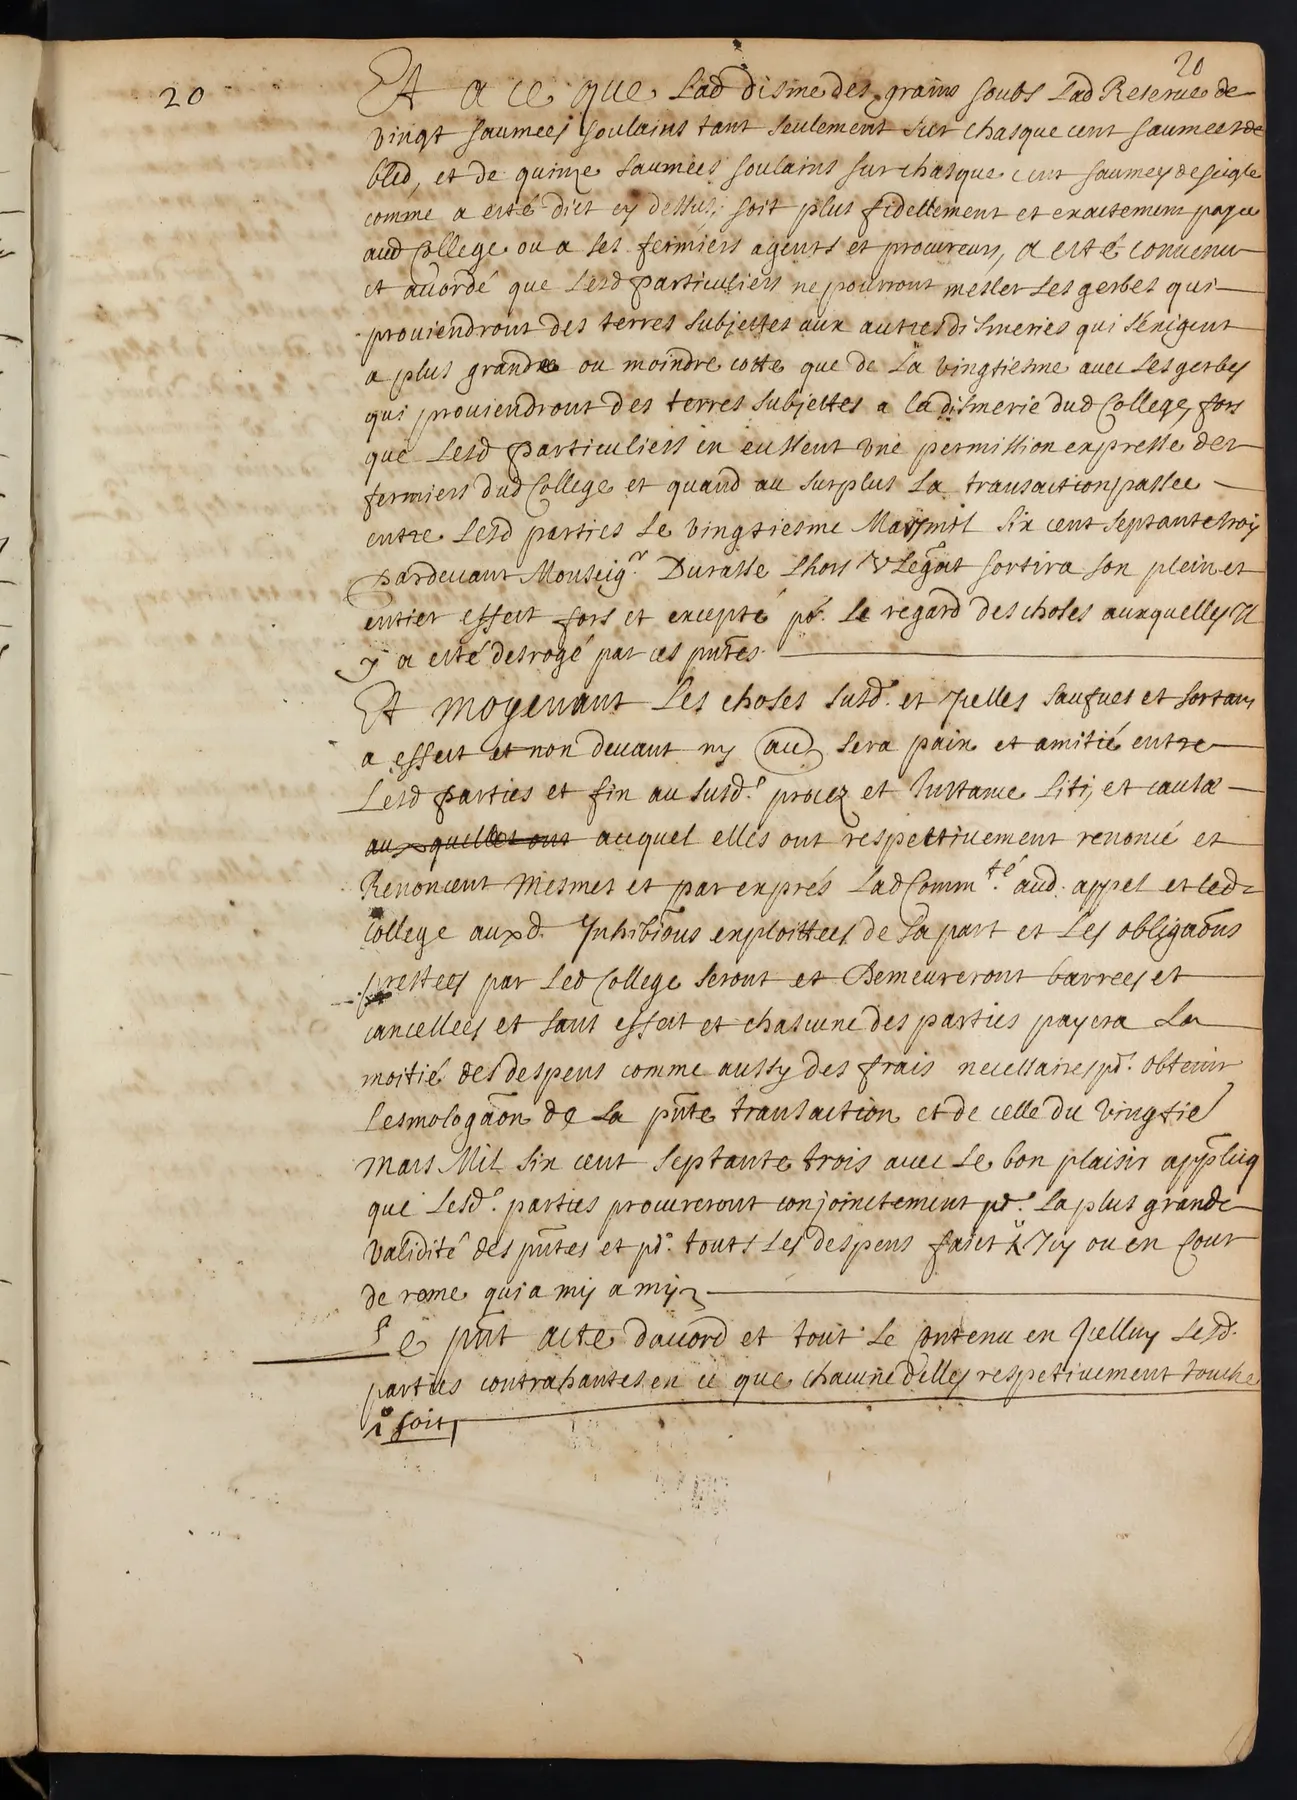 20
20
Et a ce que Lad disme des grains soubs Lad Reserue de
vingt saumees soulains tant seulement sur chasque cent saumees de
bled, et de quinze saumées soulains sur chasque cent saumey de seigle
comme a esté dict cy dessus, soit plus fidellement et exactement payee
aud College ou a ses fermiers agents et procureurs, a esté conuenu
et accordé que Lesd particuliers ne pourront mesler Les gerbes qui
prouiendront des terres subjectes aux autres dismeries qui s'exigent
a plus grande ou moindre cotte que de La vingtiesme auec Les gerbes
qui prouiendront des terres subjettes a la dismerie dud College, fors
que Lesd particuliers en eussent vne permission expresse des
fermiers dud College et quand au surplus La transaction passee
entre Lesd parties Le vingtiesme Mars mil six cent septante trois
pardeuant Monseigr. Durasse Lhors V Legat sortira son plein et
entier effect fors et excepté pr. Le regard des choses auxquelles Il
y a esté desrogé par ces pntes.
Et moyenant Les choses susd. et Icelles saufues et sortans
a effect et non deuant ny au sera paix et amitié entre
Lesd parties et fin au susd. procez et Instance Liti, et causa
aux quelles ont auquel elles ont respectiuement renoncé et
Renoncent mesmes et par exprés Lad Commté. aud. appel et led
College auxd. Inhibiõns exploittees de Sa part et Les obligaõns
prestees par Led College seront et Demeureront barrees et
cancellees et sans effect et chascune des parties payera La
moitié des despens comme aussy des frais necessaires pr. obtenir
Lesmologaõn de La pnte transaction et de celle du vingtie
mars Mil six cent septante trois auec Le bon plaisir applicq
que Lesd. parties procureront conjoinctement pr. La plus grande
validité des pntes et pr. touts Les despens faict Icy ou en Cour
de rome qui a my a my
Le pnt acte daccord et tout Le contenu en Icelluy Lesd.
parties contrahantes en ce que chacune delles respetiuement touche
soit,